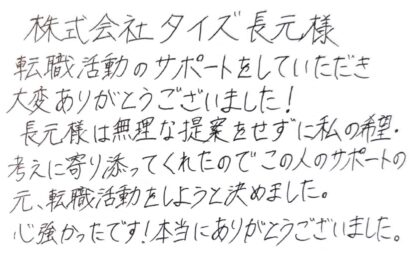 株式会社タイズ長元様
転職活動のサポートをしていただき
大変ありがとうございました!
長元様は無理な提案をせずに私の希望・
考えに寄り添ってくれたのでこの人のサポートの
元、転職活動をしようと決めました。
心強かったです!本当にありがとうございました。